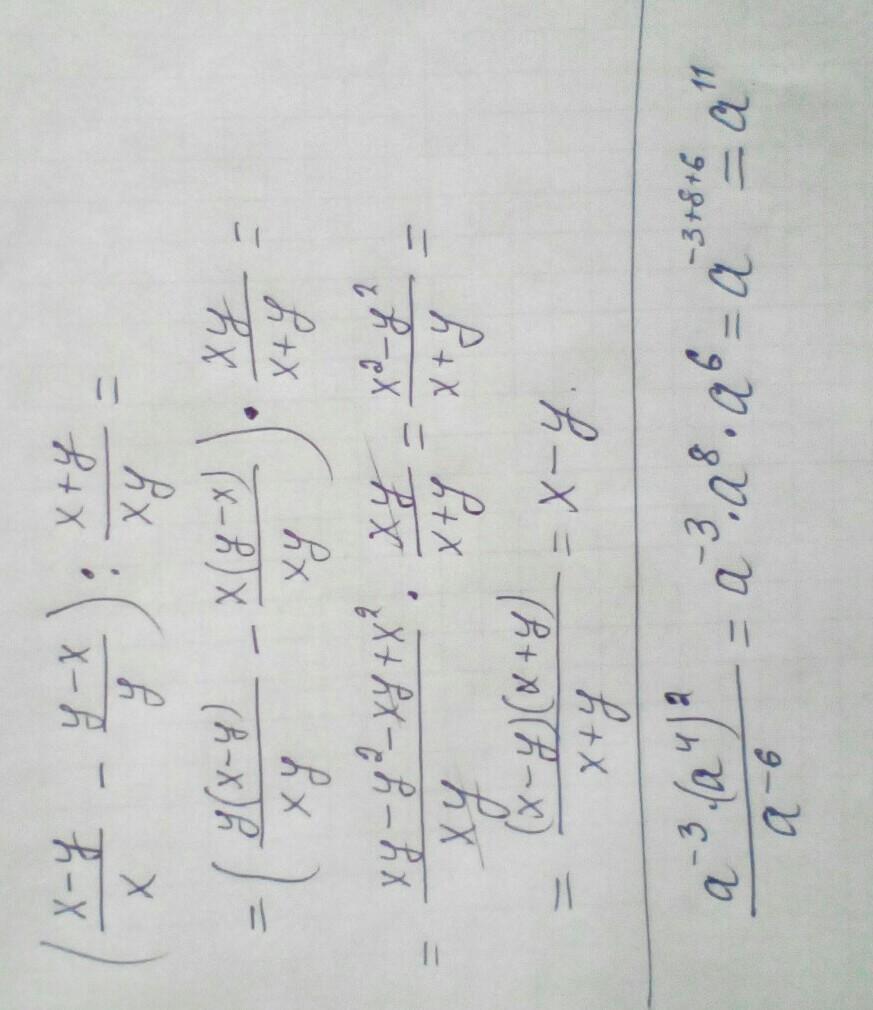 (x-y/x - y-x/y) : x+y/xy =
= (y(x-y)/xy - x(y-x)/xy) · xy/x+y =
= xy-y²-xy+x²/xy · xy/x+y = x²-y²/x+y =
= (x-y)(x+y)/x+y = x-y.
a⁻³·(a⁴)²/a⁻⁶ = a⁻³·a⁸·a⁶ = a⁻³⁺⁸⁺⁶ = a¹¹